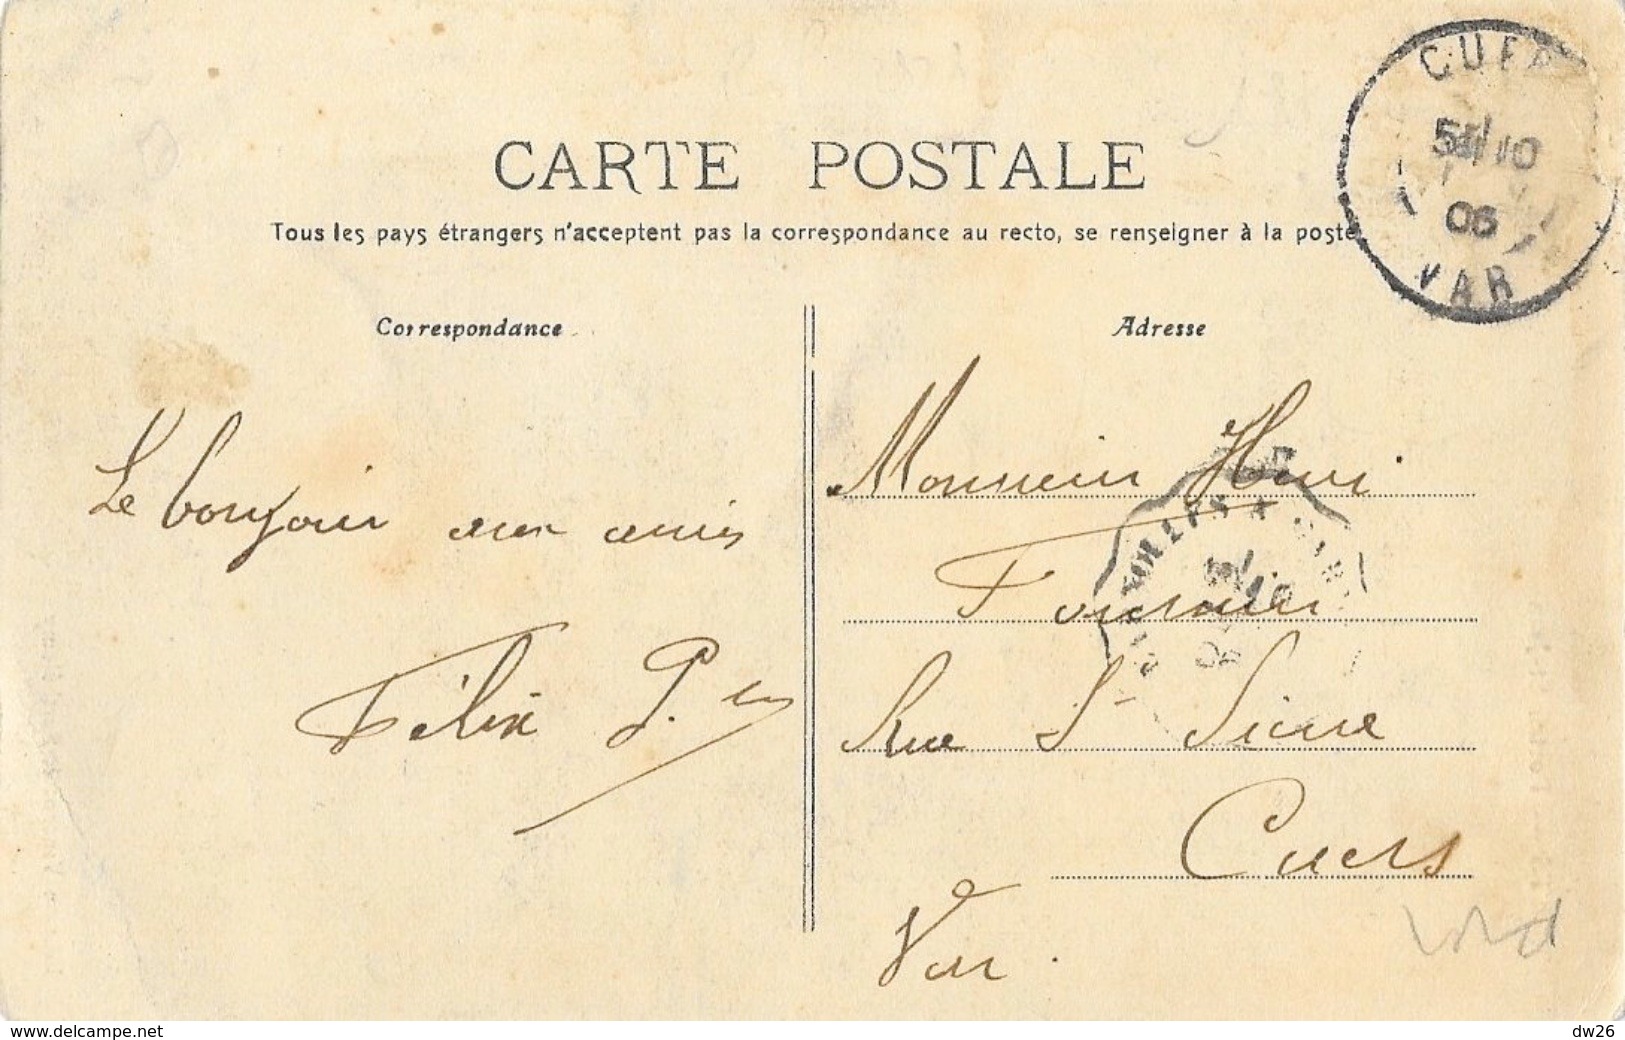 CARTE POSTALE
Tous les pays étrangers n'acceptent pas la correspondance au recto, se renseigner à la poste
CUERS
10
06
VAR
Correspondance
Le bonjour aux amis
Félix P.
Adresse
Monsieur Henri
Fournier
Rue St Pierre
Cuers
Var.
www.delcampe.net
dw26